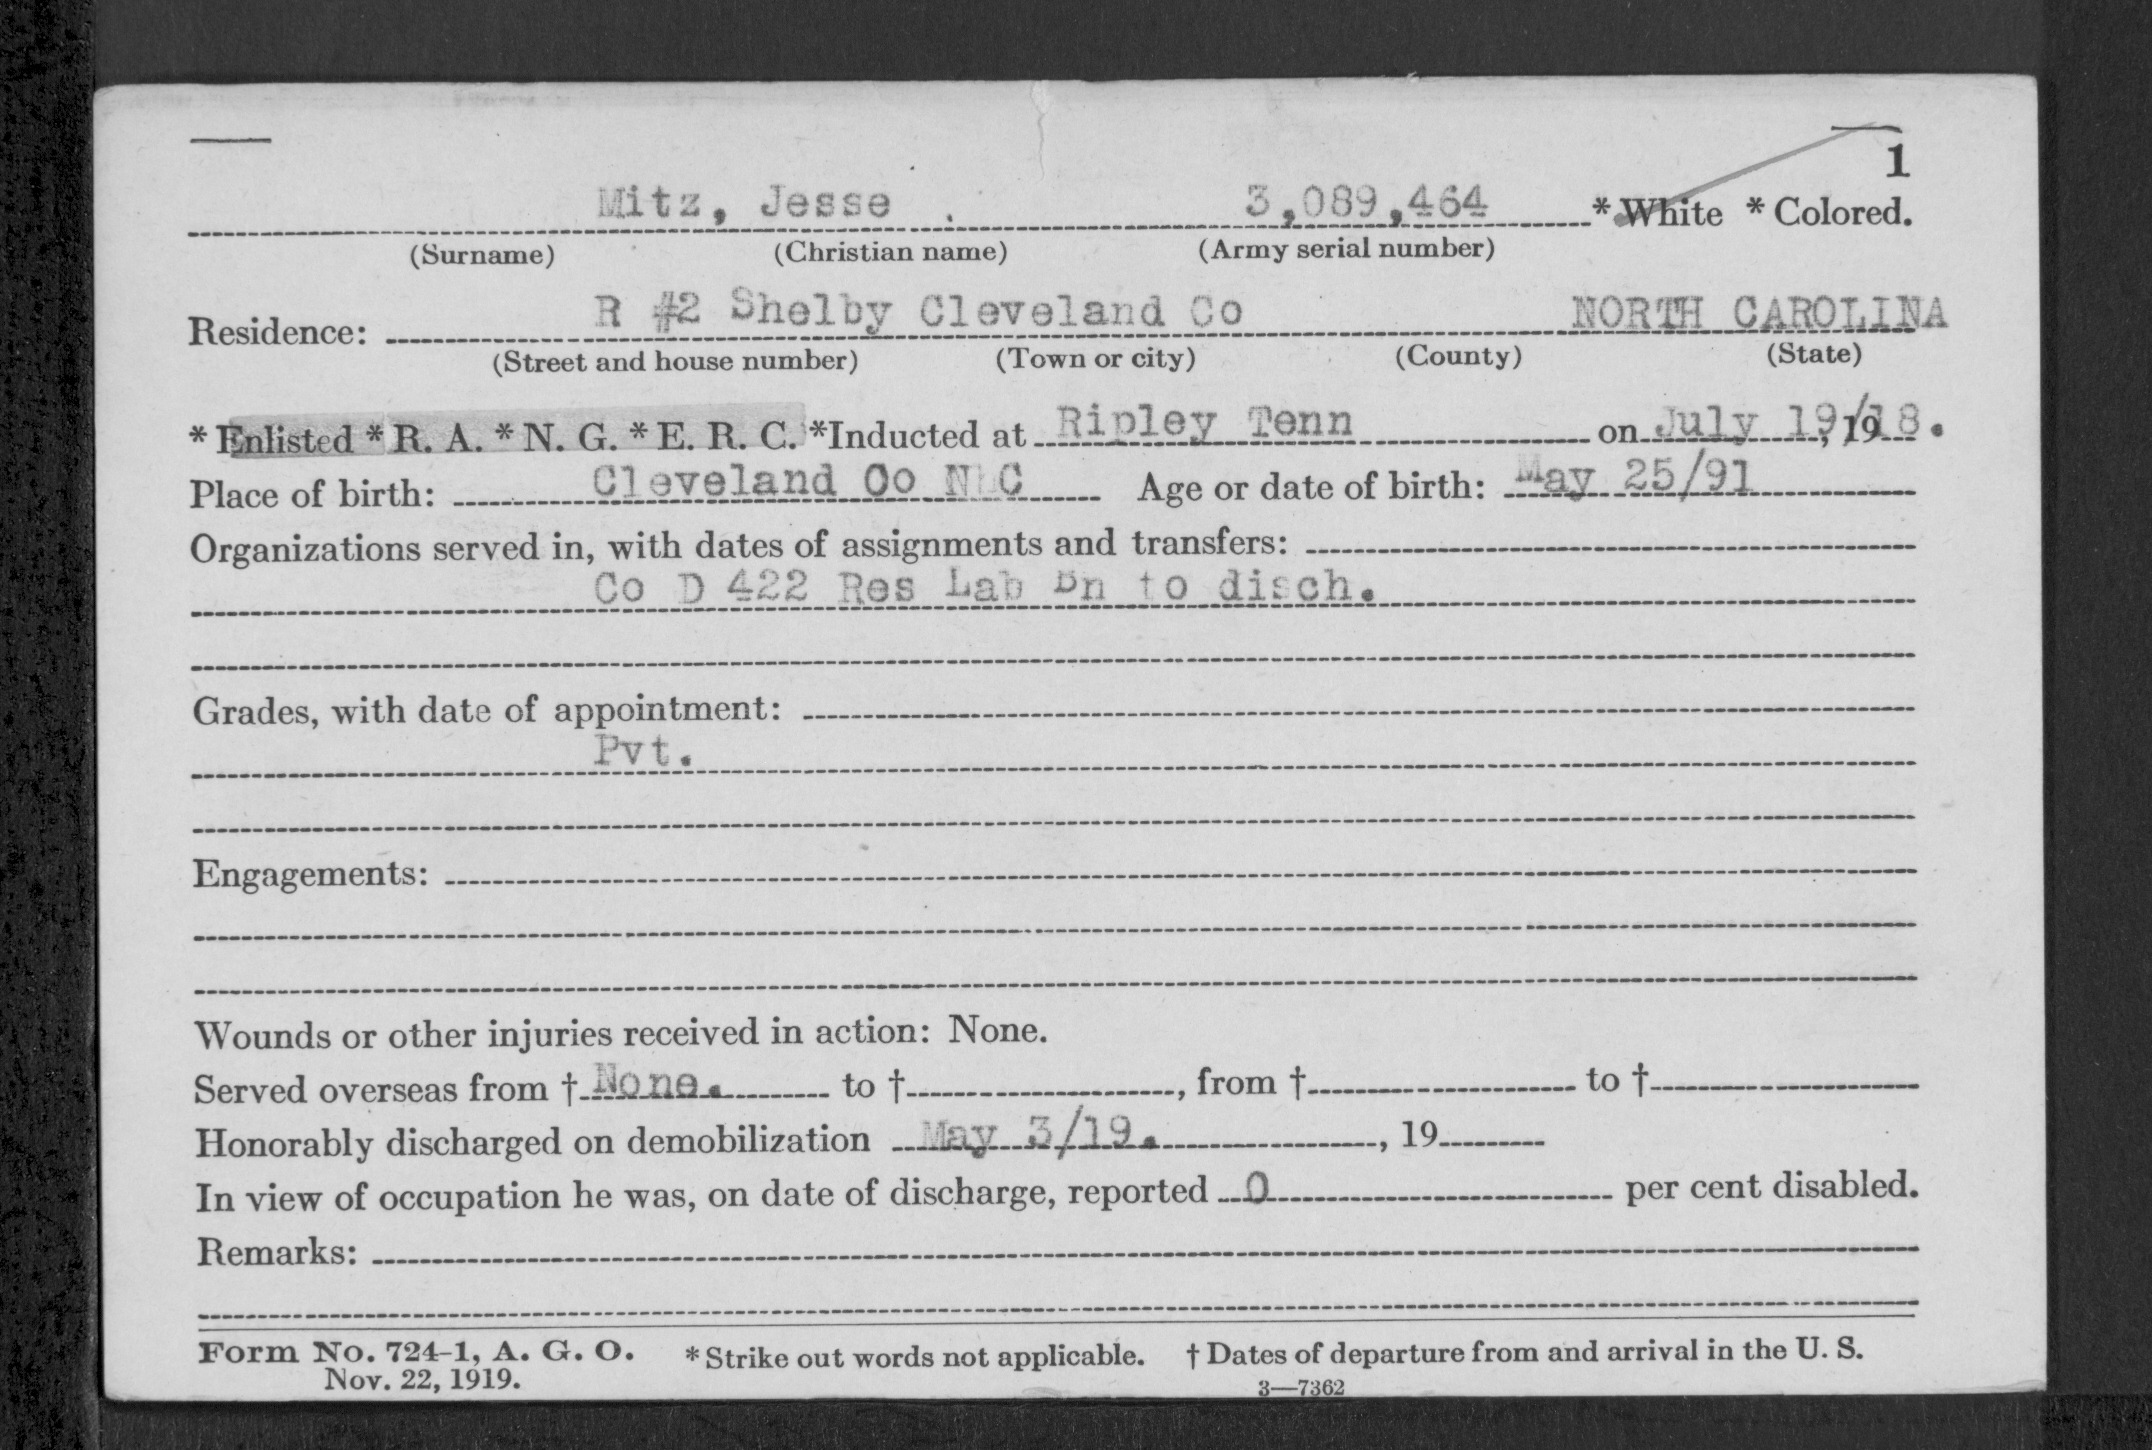 1
Mitz, Jesse . 3,089,464 * White * Colored.
(Surname) (Christian name) (Army serial number)
R #2 Shelby Cleveland Co NORTH CAROLINA
Residence:
(Street and house number) (Town or city) (County) (State)
* Enlisted * R. A. * N. G. * E. R. C. *Inducted at Ripley Tenn on July 19/18. , 19
Place of birth: Cleveland Co N C Age or date of birth: May 25/91
Organizations served in, with dates of assignments and transfers:
Co D 422 Res Lab Bn to disch.
Grades, with date of appointment:
Pvt.
Engagements:
Wounds or other injuries received in action: None.
Served overseas from † None. to † , from † to †
Honorably discharged on demobilization May 3/19. , 19
In view of occupation he was, on date of discharge, reported 0 per cent disabled.
Remarks:
Form No. 724-1, A. G. O. * Strike out words not applicable. † Dates of departure from and arrival in the U. S.
Nov. 22, 1919. 3—7362